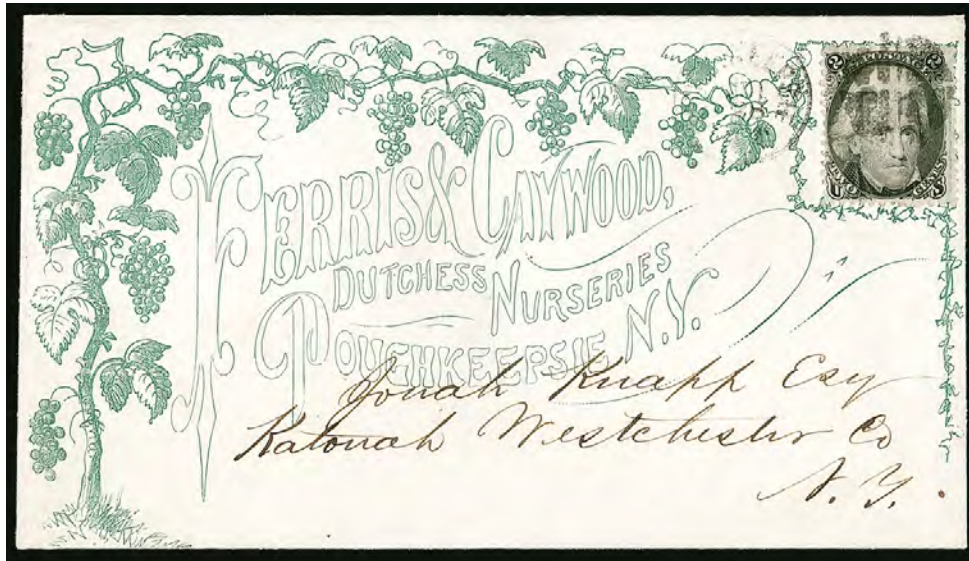 FERRIS & CAYWOOD,
DUTCHESS NURSERIES
POUGHKEEPSIE, N.Y.
2 2
TWO CENTS
Jonah Knapp Esq
Katonah Westchester Co
N. Y.